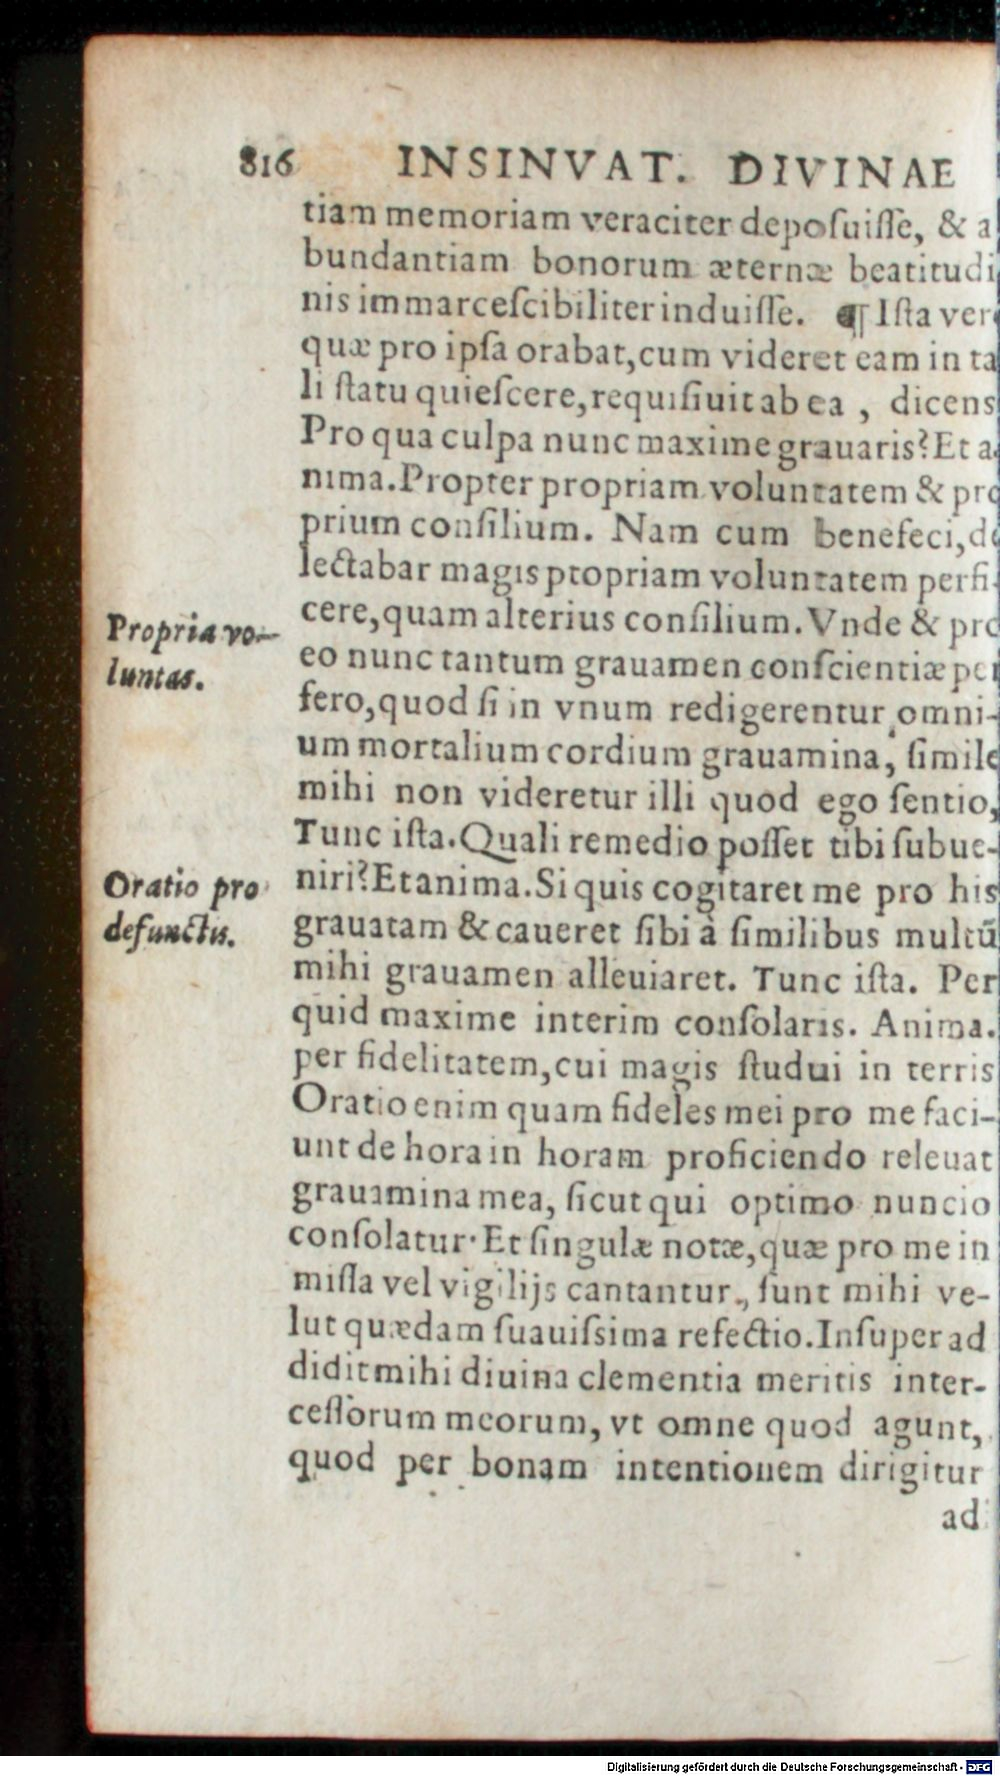 816 INSINVAT. DIVINAE
tiam memoriam veraciter deposuisse, & a
bundantiam bonorum æternæ beatitudi
nis immarcescibiliter induisse. ¶ Ista ver
quæ pro ipsa orabat, cum videret eam in ta
li statu quiescere, requisiuit ab ea , dicens
Pro qua culpa nunc maxime grauaris? Et a
nima. Propter propriam voluntatem & pro
prium consilium. Nam cum benefeci, de
lectabar magis propriam voluntatem perfi-
Propria vo-
luntas.
cere, quam alterius consilium. Vnde & pro
eo nunc tantum grauamen conscientiæ per
fero, quod si in vnum redigerentur omni-
um mortalium cordium grauamina, simile
mihi non videretur illi quod ego sentio,
Tunc ista. Quali remedio posset tibi subue-
Oratio pro
defunctis.
niri? Et anima. Si quis cogitaret me pro his
grauatam & caueret sibi à similibus multū
mihi grauamen alleuiaret. Tunc ista. Per
quid maxime interim consolaris. Anima.
per fidelitatem, cui magis studui in terris
Oratio enim quam fideles mei pro me faci-
unt de hora in horam proficiendo releuat
grauamina mea, sicut qui optimo nuncio
consolatur· Et singulæ notæ, quæ pro me in
missa vel vigilijs cantantur, sunt mihi ve-
lut quædam suauissima refectio. Insuper ad
didit mihi diuina clementia meritis inter-
cessorum meorum, vt omne quod agunt,
quod per bonam intentionem dirigitur
ad
Digitalisierung gefördert durch die Deutsche Forschungsgemeinschaft - DFG